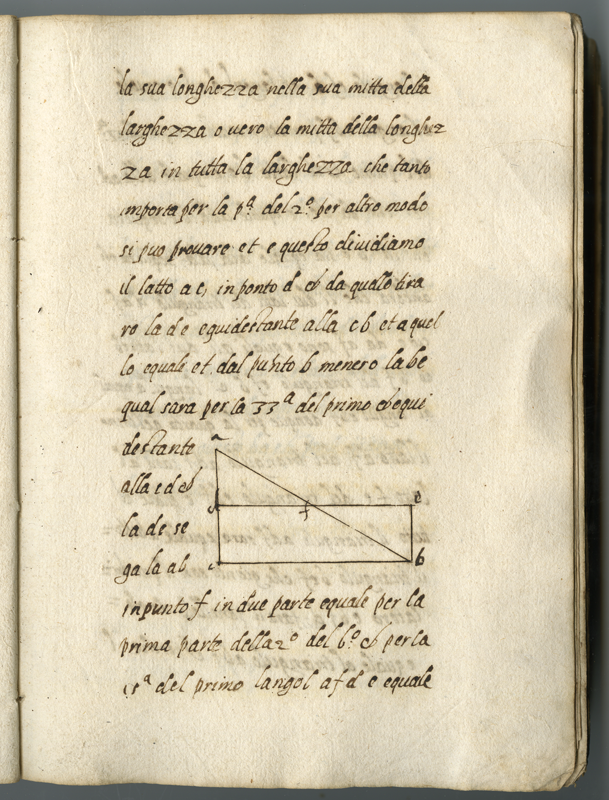 la sua longhezza nella sua mitta della
larghezza o uero la mitta della longhez
za in tutta la larghezza che tanto
importa per la pª del 2º per altro modo
si puo prouare et e questo diuidiamo
il latto a c, in ponto d & da quale tira
ro la d e equidestante alla c b et a quel
lo equale et dal punto b menero la b e
qual sara per la 33ª del primo & equi
destante
alla c d &
la d e se
ga la a b
a
d
e
f
c
b
in punto f in due parte equale per la
prima parte della 2º del 6º & per la
15ª del primo langol a f d e equale